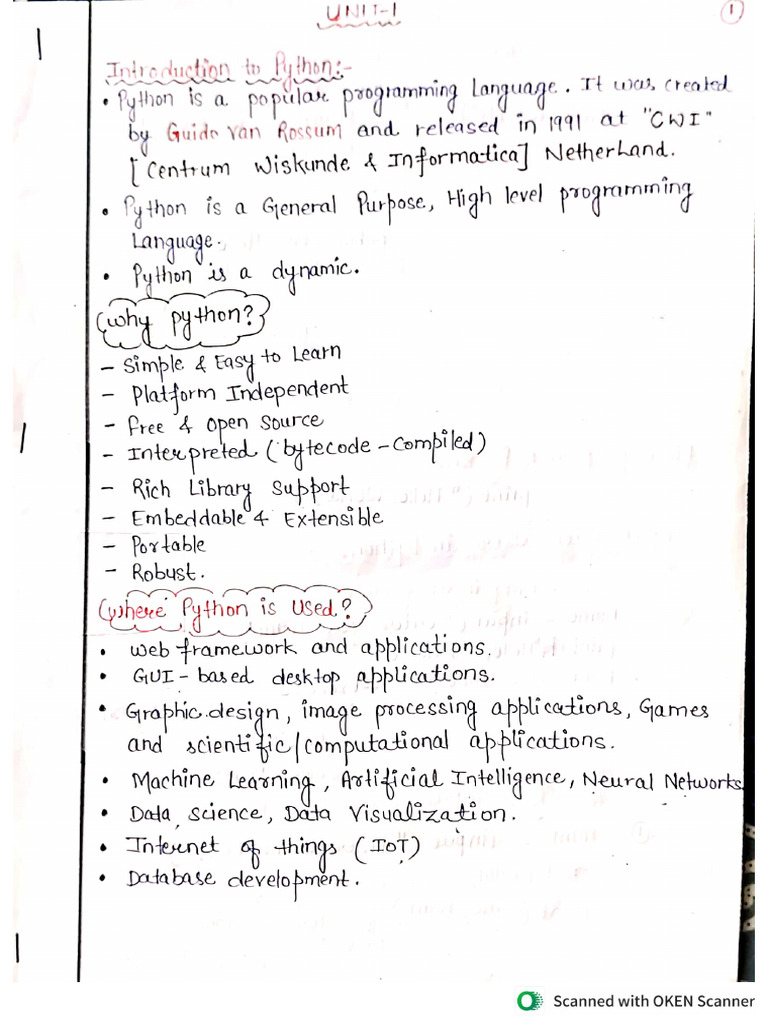 UNIT-1
1
Introduction to Python:-
• Python is a popular programming Language. It was created
by Guido Van Rossum and released in 1991 at "CWI"
[Centrum Wiskunde & Informatica] Netherland.
• Python is a General Purpose, High level programming
Language.
• Python is a dynamic.
Why python?
- Simple & Easy to Learn
- Platform Independent
- Free & Open Source
- Interpreted (bytecode-Compiled)
- Rich Library Support
- Embeddable & Extensible
- Portable
- Robust.
Where Python is Used?
• Web framework and applications.
• GUI-based desktop applications.
• Graphic design, image processing applications, Games
and scientific/computational applications.
• Machine Learning, Artificial Intelligence, Neural Networks
• Data science, Data Visualization.
• Internet of things (IoT)
• Database development.
Scanned with OKEN Scanner